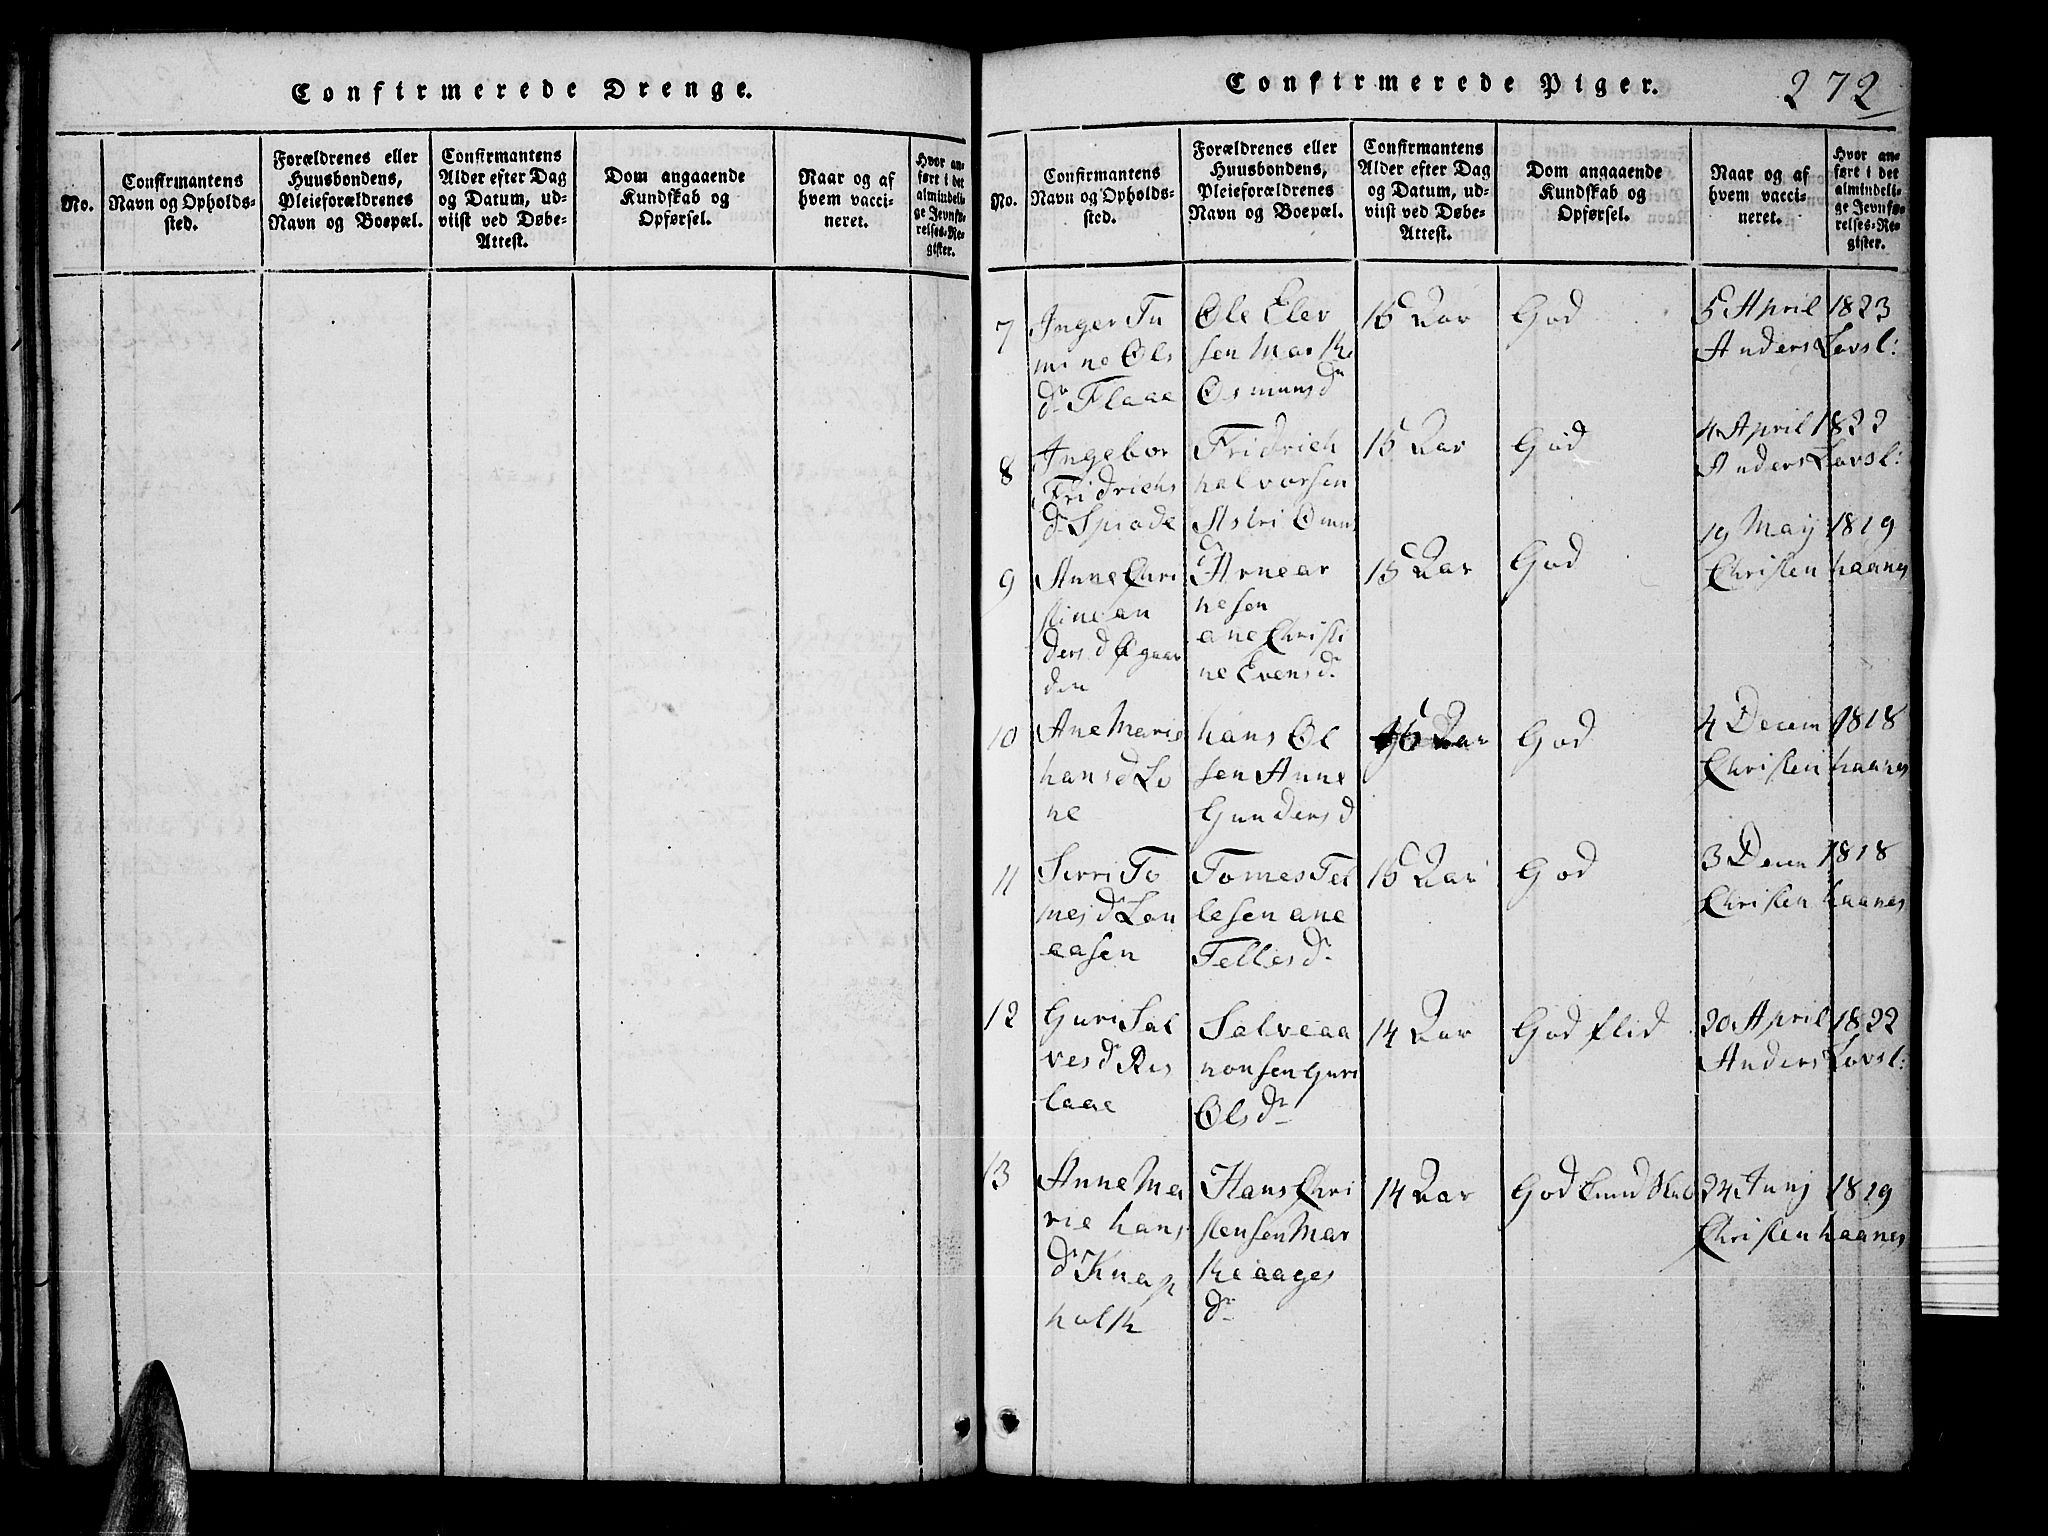 Confirmerede Drenge.
No.
Confirmantens
Navn og Opholds-
sted.
Forældrenes eller
Huusbondens,
Pleieforældrenes
Navn og Boepæl.
Confirmantens
Alder efter Dag
og Datum, ud-
viist ved Døbe-
Attest.
Dom angaaende
Kundskab og
Opførsel.
Naar og af
hvem vacci-
neret.
Hvor an-
ført i det
almindeli-
ge Jevnfø-
relses-Re-
gister.
Confirmerede Piger.
272
No.
Confirmantens
Navn og Opholds-
sted.
Forældrenes eller
Huusbondens,
Pleieforældrenes
Navn og Boepæl.
Confirmantens
Alder efter Dag
og Datum, ud-
viist ved Døbe-
Attest.
Dom angaaende
Kundskab og
Opførsel.
Naar og af
hvem vacci-
neret.
Hvor an-
ført i det
almindeli-
ge Jevnfø-
relses-Re-
gister.
7
Inger To
mine Ols
dr Flaae
Ole Elev
sen Marte
Osmunsdr
15 Aar
God
5 April 1823
Anders Lovsl:
8
Ingebor
Fridrichs
dr Spiode
Fridrich
halvorsen
Astri Omun
d
15 Aar
God
4 April 1822
Anders Lovsl:
9
Anne Chri
stine an
ders d Øgaar
den
Arne ar
nesen
ane Christi
ne Evensdr
15 Aar
God
19 May 1819
Christen haanes
10
Ane Marie
hans d Lo
ne
hans Ol
sen Anne
Gunders d
Aar
God
4 Decem 1818
Christen haanes
11
Sirri To
mes dr Lon
aasen
Tomes Tel
lesen ane
Tellesdr
15 Aar
God
3 Decem 1818
Christen haanes
12
Guri Sal
ves dr Ris
laae
Salve aa
nonsen Guri
Olsdr
14 Aar
God flid
20 April 1822
Anders Lovsl:
13
Anne Ma
rie hans
dr Knap
holt
Hans Chri
stensen Mar
te aages
dr
14 Aar
God kundskab
24 Junj 1819
Christen haanes